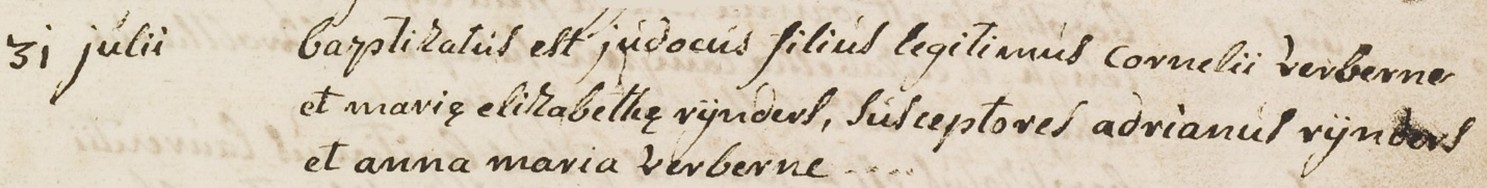 31 julii baptizatus est judocus filius legitimus cornelii verberne
et marię elizabethę rijnders, susceptores adrianus rijnders
et anna maria verberne ....